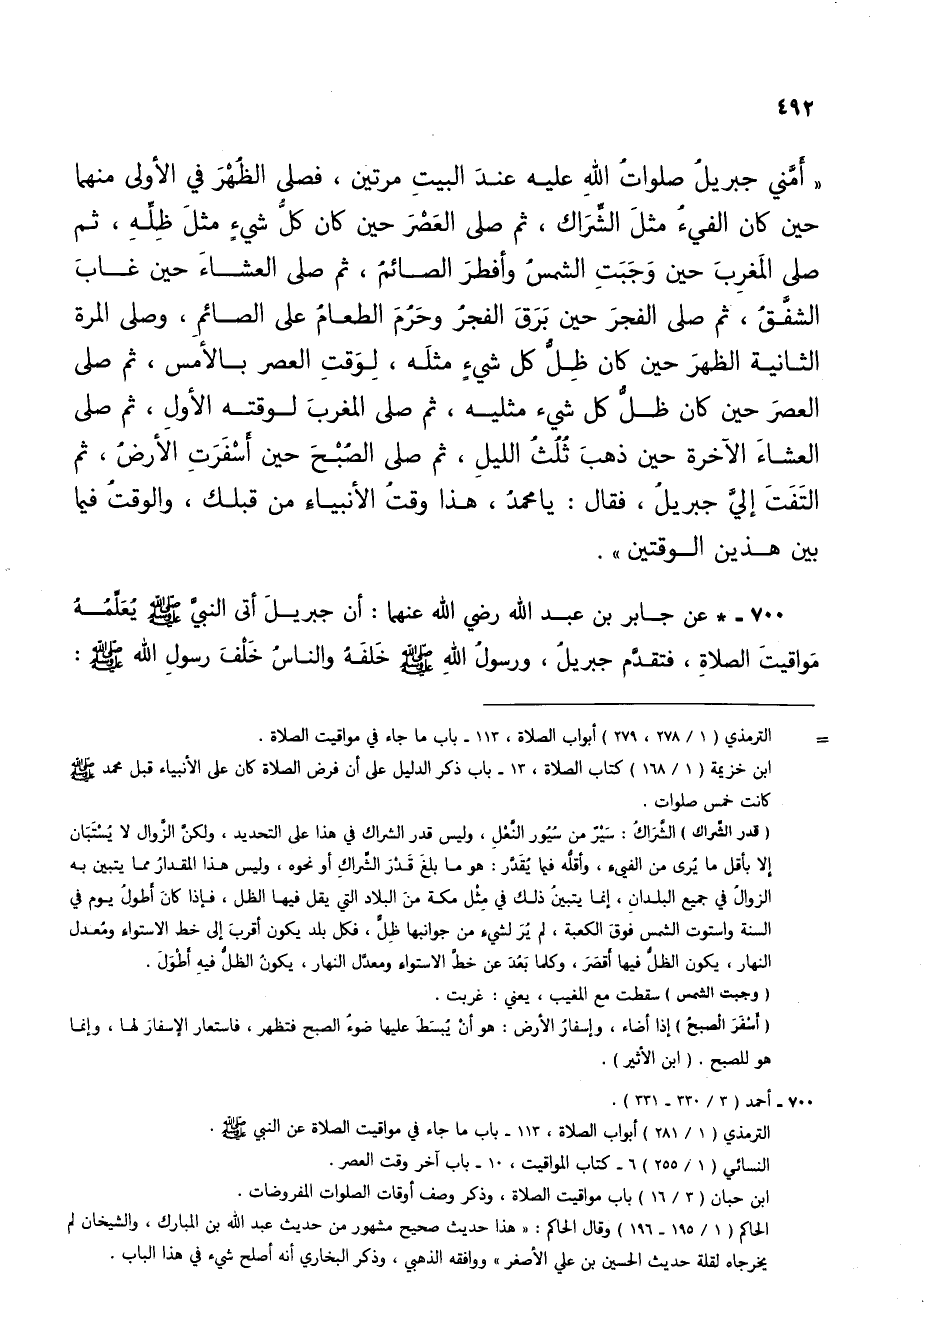 ٤٩٢
« أَمَّني جبريلُ صلواتُ اللهِ عليه عندَ البيتِ مرتين ، فصلى الظُهْرَ في الأولى منهما
حين كان الفيءُ مثلَ الشِّرَاك ، ثم صلى العَصْرَ حين كان كلُّ شيءٍ مثلَ ظِلِّهِ ، ثم
صلى المَغربَ حين وَجَبَتِ الشمسُ وأفطرَ الصائمُ ، ثم صلى العشاءَ حين غابَ
الشفَّقُ ، ثم صلى الفجرَ حين بَرَقَ الفجرُ وحَرُمَ الطعامُ على الصائمِ ، وصلى المرة
الثانية الظهرَ حين كان ظِلُّ كل شيءٍ مثلَه ، لِوَقتِ العصر بالأمس ، ثم صلى
العصرَ حين كان ظلُّ كل شيء مثليه ، ثم صلى المغربَ لوقته الأول ، ثم صلى
العشاءَ الآخرة حين ذهبَ ثُلُثُ الليل ، ثم صلى الصُبْحَ حين أَسْفَرَتِ الأرضُ ، ثم
التَفَتَ إليَّ جبريلُ ، فقال : يامحمدُ ، هذا وقتُ الأنبياءِ من قبلك ، والوقتُ فيما
بين هذين الوقتين » .
٧٠٠ ـ * عن جابر بن عبد الله رضي الله عنهما : أن جبريلَ أتى النبيَّ ﷺ يُعَلِّمُهُ
مَواقيتَ الصلاةِ ، فتقدَّم جبريلُ ، ورسولُ اللهِ ﷺ خَلفَهُ والناسُ خَلْفَ رسولِ الله ﷺ :
= الترمذي ( ١ / ٢٧٨ ، ٢٧٩ ) أبواب الصلاة ، ١١٣ ـ باب ما جاء في مواقيت الصلاة .
ابن خزيمة ( ١ / ١٦٨ ) كتاب الصلاة ، ١٣ ـ باب ذكر الدليل على أن فرض الصلاة كان على الأنبياء قبل محمد ﷺ
كانت خمس صلوات .
( قدر الشِّراك ) الشِّرَاكُ : سَيْرٌ من سُيُور النَّعْل ، وليس قدر الشراك في هذا على التحديد ، ولكنَّ الزَّوال لا يُسْتَبَان
إلا بأقل ما يُرى من الفيء ، وأقلُّه فيما يُقَدَّر : هو ما بلغَ قَدْرَ الشِّراك أو نحوه ، وليس هذا المقدارُ مما يتبين به
الزوالُ في جميع البلدان ، إنما يتبينُ ذلك في مِثْل مكة منَ البلاد التي يقل فيها الظل ، فإذا كانَ أطولُ يوم في
السنة واستوت الشمس فوقَ الكعبة ، لم يُرَ لشيء من جوانبها ظِلٌّ ، فكل بلد يكون أقربَ إلى خط الاستواء ومُعدل
النهار ، يكون الظلُّ فيها أقصَرَ ، وكلما بَعُدَ عن خطِّ الاستواء ومعدَّل النهار ، يكونُ الظلُّ فيه أطْوَلَ .
( وجبت الشمس ) سقطت مع المغيب ، يعني : غربت .
( أَسْفَرَ الصبحُ ) إذا أضاء ، وإسفارُ الأرض : هو أنْ يُبسَطَ عليها ضوءُ الصبح فتظهر ، فاستعار الإسفارَ لها ، وإنما
هو للصبح . ( ابن الأثير ) .
٧٠٠ ـ أحمد ( ٣ / ٣٣٠ ـ ٣٣١ ) .
الترمذي ( ١ / ٢٨١ ) أبواب الصلاة ، ١١٣ ـ باب ما جاء في مواقيت الصلاة عن النبي ﷺ .
النسائي ( ١ / ٢٥٥ ) ٦ ـ كتاب المواقيت ، ١٠ ـ باب آخر وقت العصر .
ابن حبان ( ٣ / ١٦ ) باب مواقيت الصلاة ، وذكر وصف أوقات الصلوات المفروضات .
الحاكم ( ١ / ١٩٥ ـ ١٩٦ ) وقال الحاكم : « هذا حديث صحيح مشهور من حديث عبد الله بن المبارك ، والشيخان لم
يخرجاه لقلة حديث الحسين بن علي الأصغر » ووافقه الذهبي ، وذكر البخاري أنه أصلح شيء في هذا الباب .